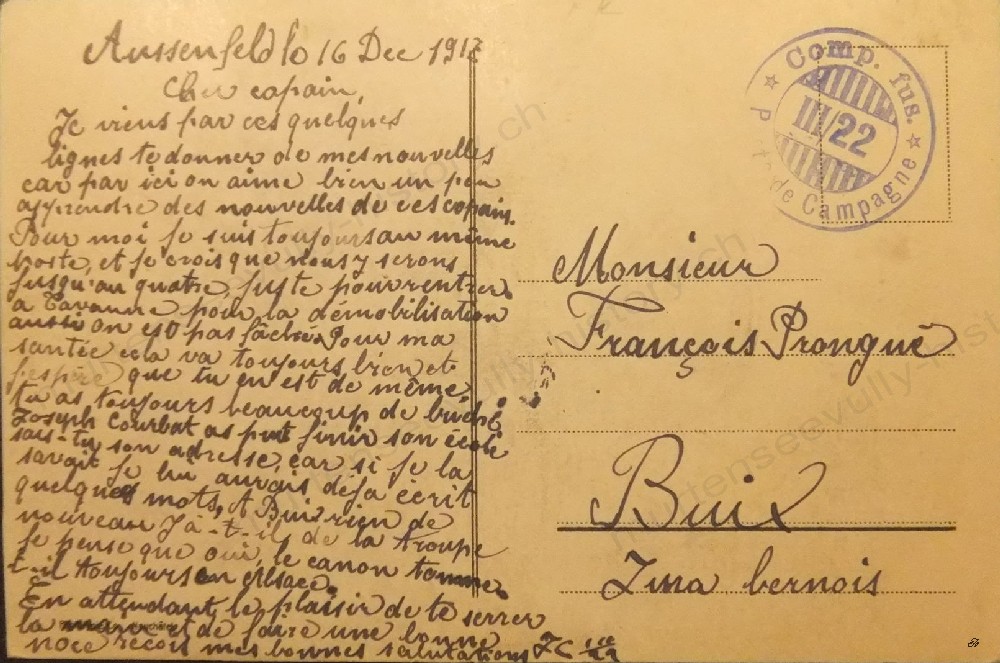 Aussenfeld le 16 Dec 1917
Cher copain,
Je viens par ces quelques
lignes te donner de mes nouvelles
car par ici on aime bien un peu
apprendre des nouvelles de ces copain.
Pour moi je suis toujours au même
poste, et je crois que nous y serons
jusqu'au quatre, juste pour rentrer
a Tavanne pour la démobilisation
aussi on est pas fâché. Pour ma
santée cela va toujours bien et
j'espère que tu en est de même,
tu as toujours beaucoup de
Joseph Courbat as put finir son école
sais-tu son adresse, car si je la
savait je lui aurais déja écrit
quelques mots, A Buix rien de
nouveau J à-t-il de la troupe
je pense que oui, le canon tonne
t-il toujours en Alsace.
En attendant le plaisir de te serrer
la main et de faire une bonne
noce reçois mes bonnes salutations
Comp. fus.
III/22
Poste de Campagne
Monsieur
François Prongué
Buix
Jura bernois
murtenseevully-history.ch